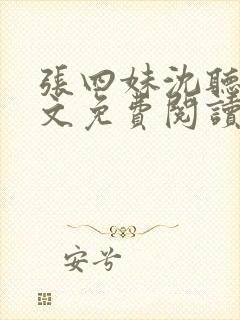 張四妹沈聽
文免費閱讀
安兮